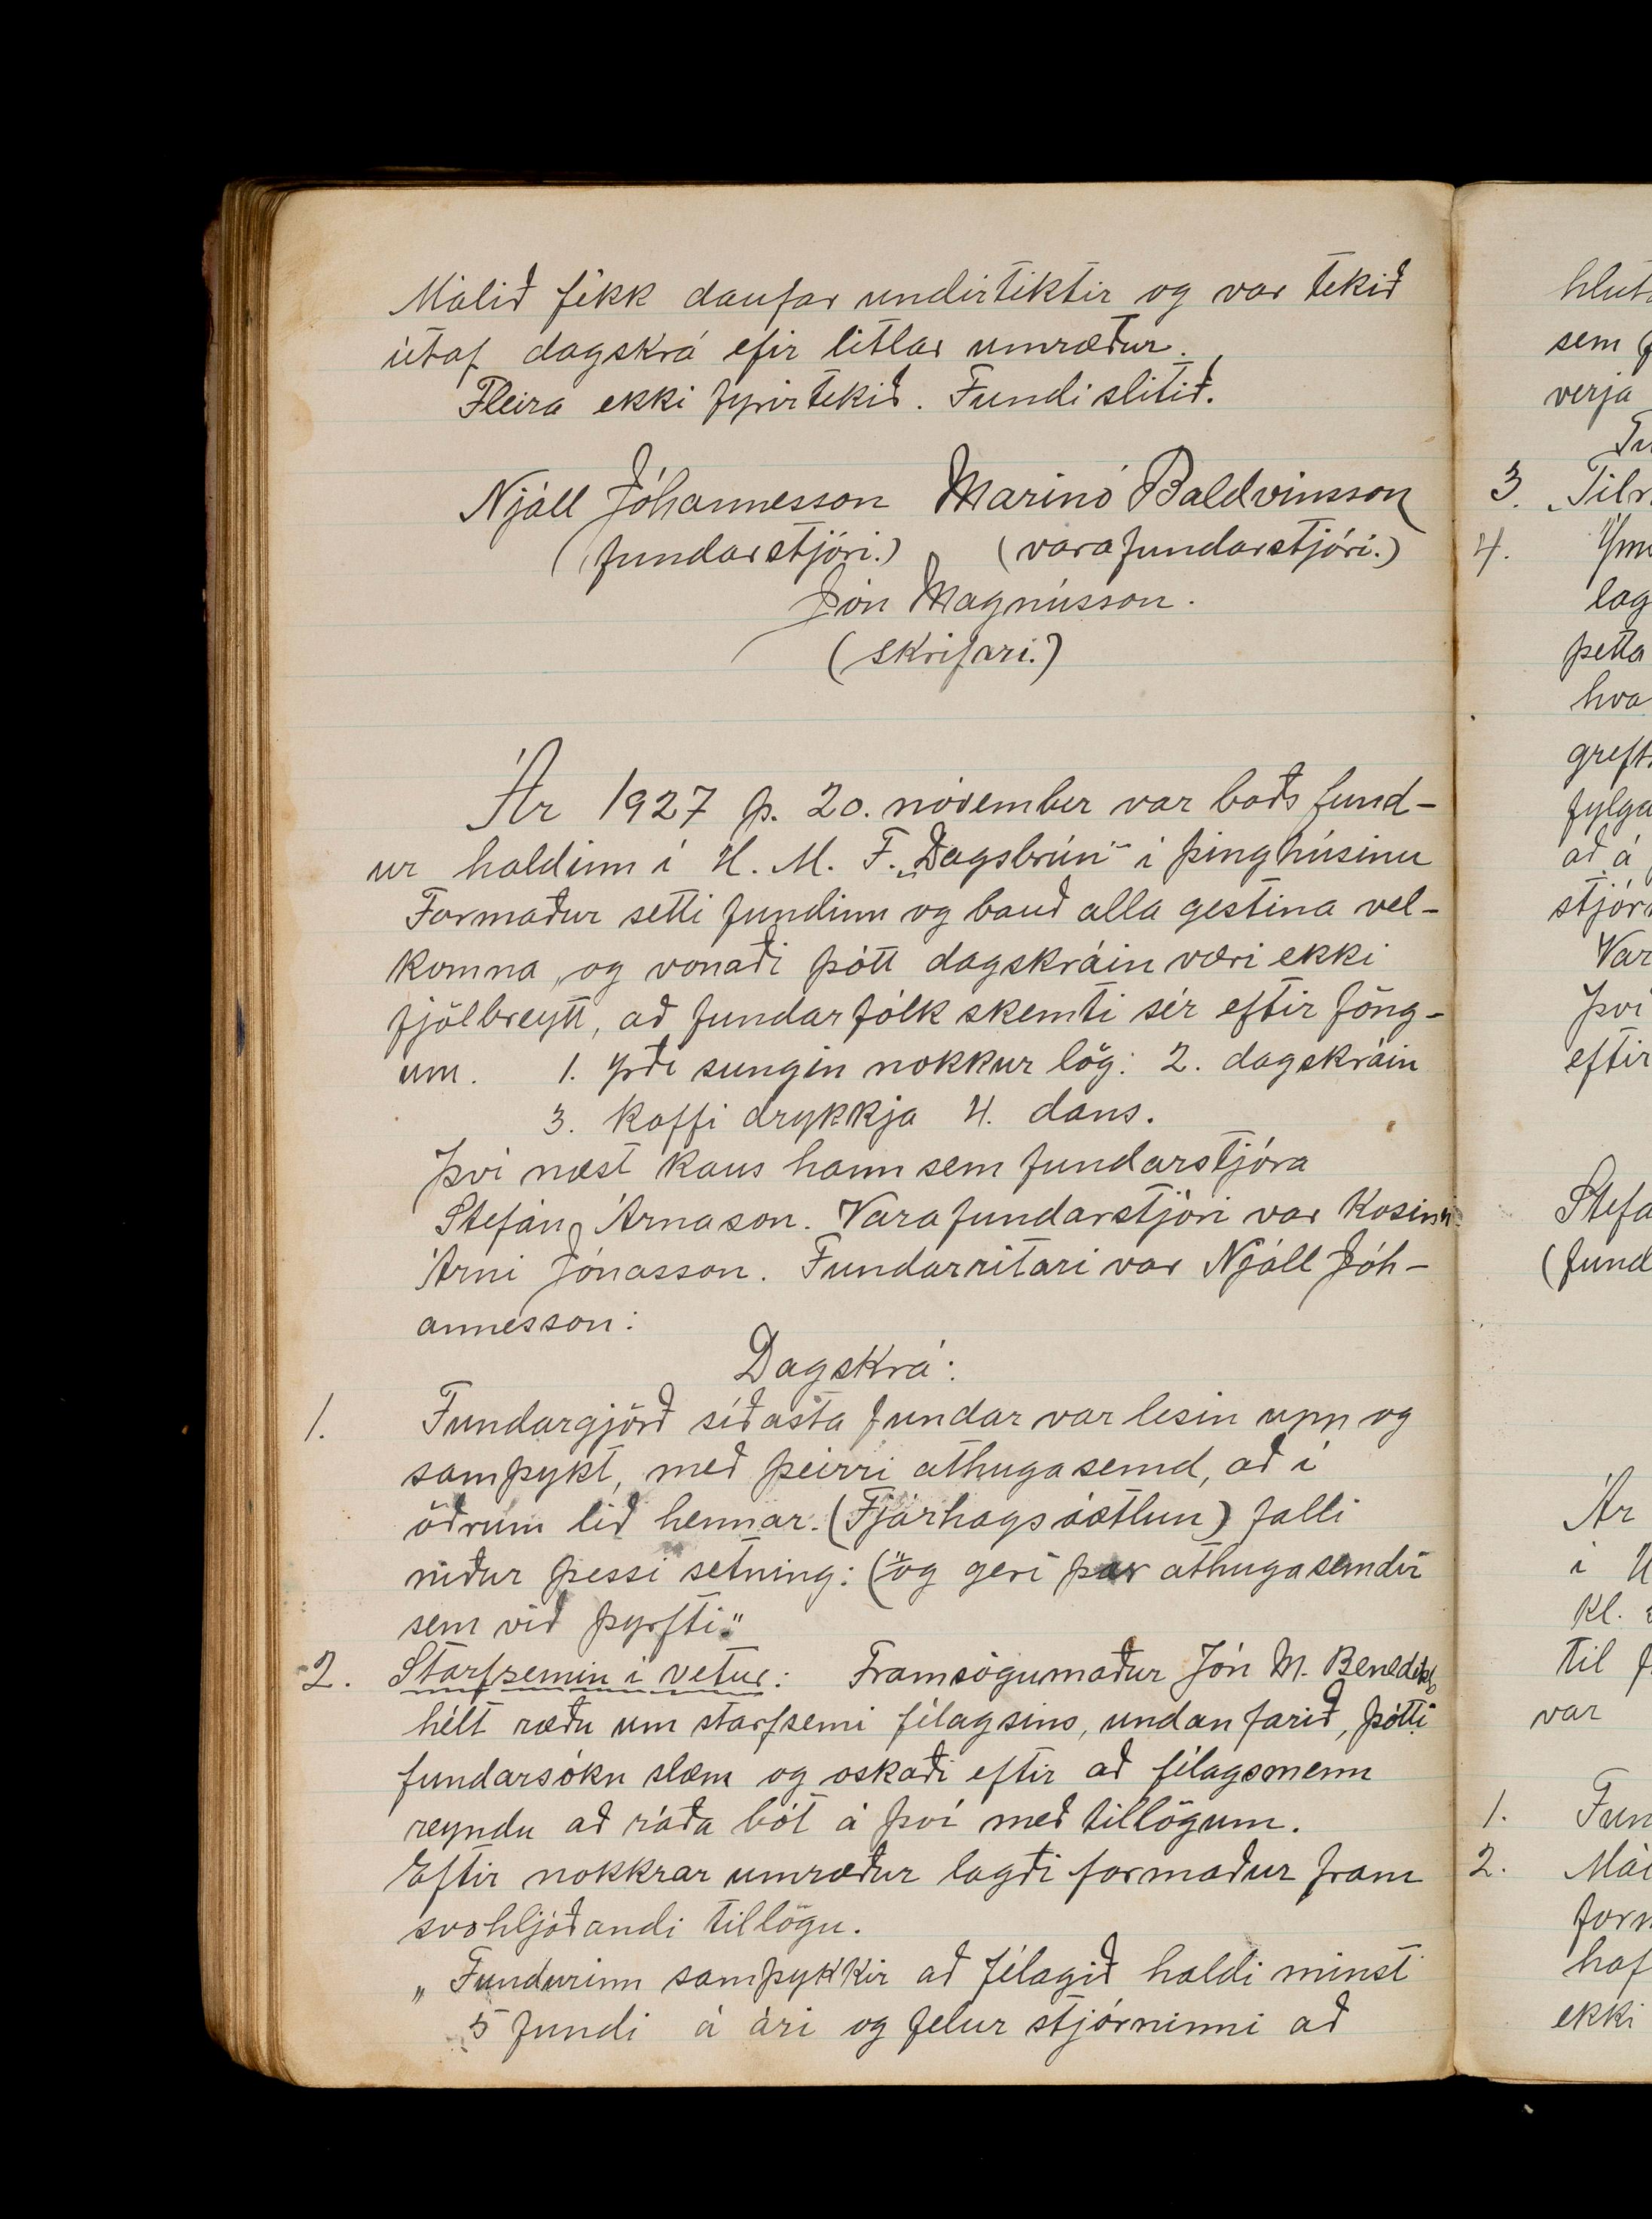 Málið fékk daufar undirtiktir og var tekið
útaf dagskrá efir litlar umræður.
Fleira ekki fyrirtekið. Fundi slitið.
Njáll Jóhannesson Marinó Baldvinsson
(fundarstjóri.) (varafundarstjóri.)
Jón Magnússon.
(skrifari.)
Ár 1927 þ. 20. nóvember var boðs fund-
ur haldinn í U. M. F. „Dagsbrún" í þinghúsinu
Formaður setti fundinn og bauð alla gestina vel-
komna, og vonaði þótt dagskráin væri ekki
fjölbreytt, að fundarfólk skemti sér eftir föng-
um. 1. yrði sungin nokkur lög: 2. dagskráin
3. kaffi drykkja 4. dans.
Því næst kaus hann sem fundarstjóra
Stefán Árnason. Varafundarstjóri var kosinn
Árni Jónasson. Fundarritari var Njáll Jóh-
annesson:
Dagskrá:
1. Fundargjörð síðasta fundar var lesin upp og
samþykt, með þeirri athugasemd, að í
öðrum lið hennar. (Fjárhagsáætlun) falli
niður þessi setning: ("og geri þar athugasemdir
sem við þyrfti."
2. Starfsemin í vetur: Framsögumaður Jón M. Benedikts
hélt ræðu um starfsemi félagsins, undanfarið, þótti
fundarsókn slæm og oskaði eftir að félagsmenn
reyndu að ráða bót á því með tillögum.
Eftir nokkrar umræður lagði formaður fram
svohljóðandi tillögu.
„Fundurinn samþykkir að félagið haldi minst
5 fundi á ári og felur stjórninni að
hlut
sem
verja
3.
4.
lag
þetta
hva
greft
fylga
að á
stjór
Var
því
eftir
Stefá
(fund
Ár
í U
kl.
til f
var
1. Fun
2. Mál
form
haf
ekki